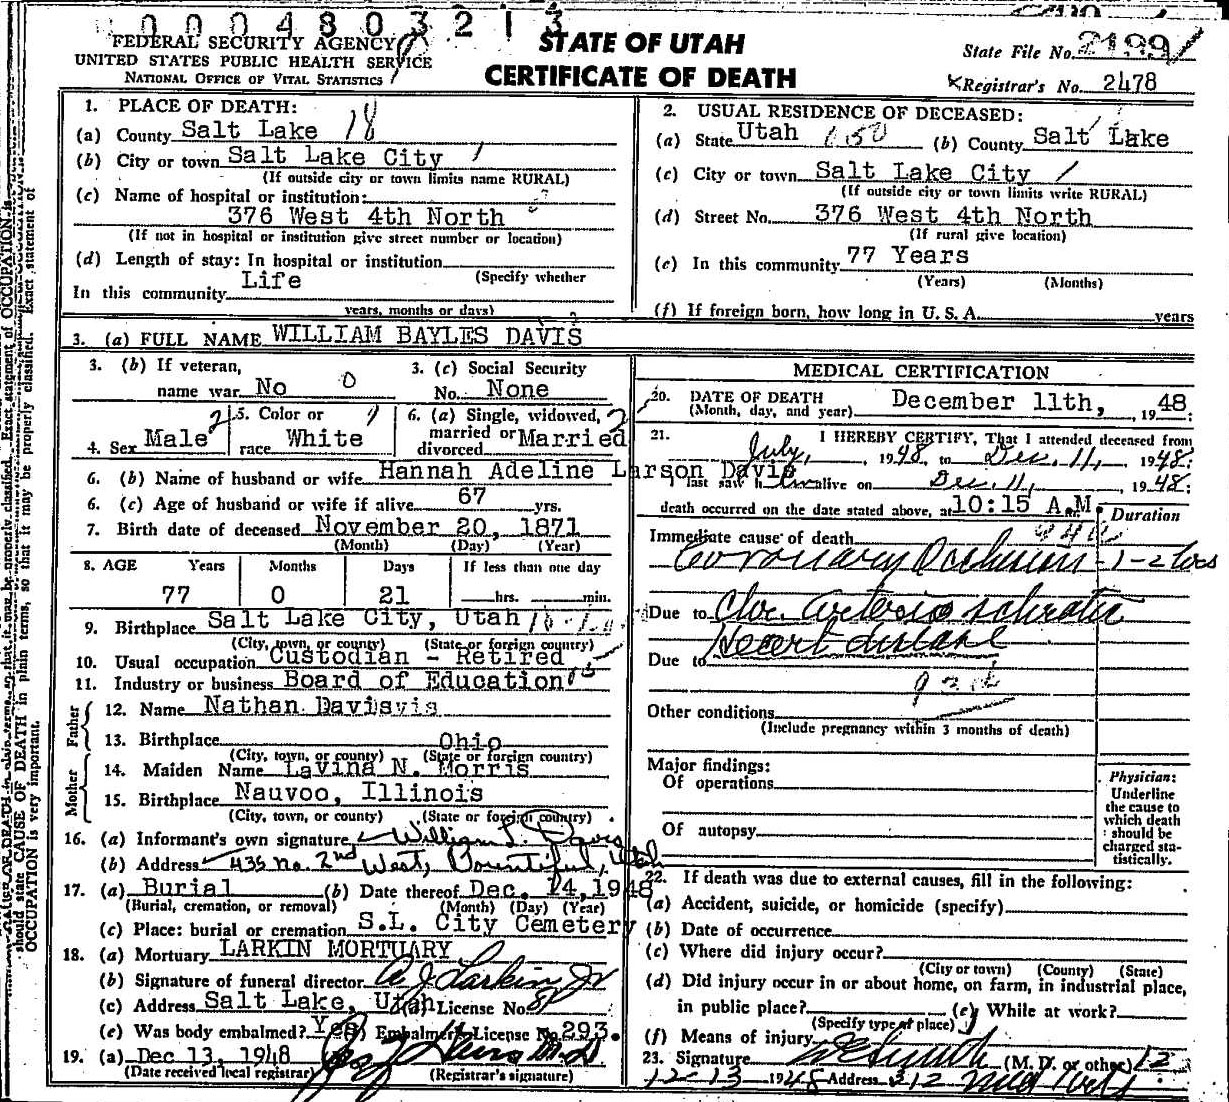 0004803213
FEDERAL SECURITY AGENCY
UNITED STATES PUBLIC HEALTH SERVICE
NATIONAL OFFICE OF VITAL STATISTICS
STATE OF UTAH
CERTIFICATE OF DEATH
State File No. 2199
Registrar's No. 2478
1. PLACE OF DEATH:
(a) County Salt Lake 18
(b) City or town Salt Lake City 1
(If outside city or town limits name RURAL)
(c) Name of hospital or institution:
376 West 4th North
(If not in hospital or institution give street number or location)
(d) Length of stay: In hospital or institution
(Specify whether
In this community Life
years, months or days)
2. USUAL RESIDENCE OF DECEASED:
(a) State Utah (b) County Salt Lake
(c) City or town Salt Lake City
(If outside city or town limits write RURAL)
(d) Street No. 376 West 4th North
(If rural give location)
(e) In this community 77 Years
(Years) (Months)
(f) If foreign born, how long in U. S. A. years
3. (a) FULL NAME WILLIAM BAYLES DAVIS
3. (b) If veteran,
name war No 0
3. (c) Social Security
No. None
4. Sex Male 2
5. Color or
race White
6. (a) Single, widowed, 2
married or Married
divorced
6. (b) Name of husband or wife Hannah Adeline Larson Davis
6. (c) Age of husband or wife if alive 67 yrs.
7. Birth date of deceased November 20, 1871
(Month) (Day) (Year)
8. AGE Years Months Days If less than one day
77 0 21 hrs. min.
9. Birthplace Salt Lake City, Utah
(City, town, or county) (State or foreign country)
10. Usual occupation Custodian - Retired
11. Industry or business Board of Education
Father
12. Name Nathan Davis
13. Birthplace Ohio
(City, town, or county) (State or foreign country)
Mother
14. Maiden Name LaVina N. Morris
15. Birthplace Nauvoo, Illinois
(City, town, or county) (State or foreign country)
16. (a) Informant's own signature William L. Davis
(b) Address 435 No. 2nd West, Bountiful, Utah
17. (a) Burial (b) Date thereof Dec. 14, 1948
(Burial, cremation, or removal) (Month) (Day) (Year)
(c) Place: burial or cremation S.L. City Cemetery
18. (a) Mortuary LARKIN MORTUARY
(b) Signature of funeral director A J Larkin Jr
(c) Address Salt Lake, Utah (d) License No. 81
(e) Was body embalmed? Yes (f) Embalmer License No. 293.
19. (a) Dec 13, 1948
(Date received local registrar) (Registrar's signature)
MEDICAL CERTIFICATION
20. DATE OF DEATH
(Month, day, and year) December 11th, , 1948:
21. I HEREBY CERTIFY, That I attended deceased from
July, 1948, to Dec. 11, 1948:
I last saw him alive on Dec. 11, , 1948:
death occurred on the date stated above, at 10:15 A.M.
Duration
Immediate cause of death
Coronary Occlusion 1-2 hrs
Due to Chr. arterio sclerotic
heart disease
Due to
Other conditions
(Include pregnancy within 3 months of death)
Major findings:
Of operations
Of autopsy
Physician:
Underline
the cause to
which death
should be
charged sta-
tistically.
22. If death was due to external causes, fill in the following:
(a) Accident, suicide, or homicide (specify)
(b) Date of occurrence
(c) Where did injury occur?
(City or town) (County) (State)
(d) Did injury occur in or about home, on farm, in industrial place,
in public place? (e) While at work?
(Specify type of place)
(f) Means of injury
23. Signature (M. D. or other)
12-13 1948 Address 312
should state CAUSE OF DEATH in plain terms, so that it may be properly classified. Exact statement of
OCCUPATION is very important.